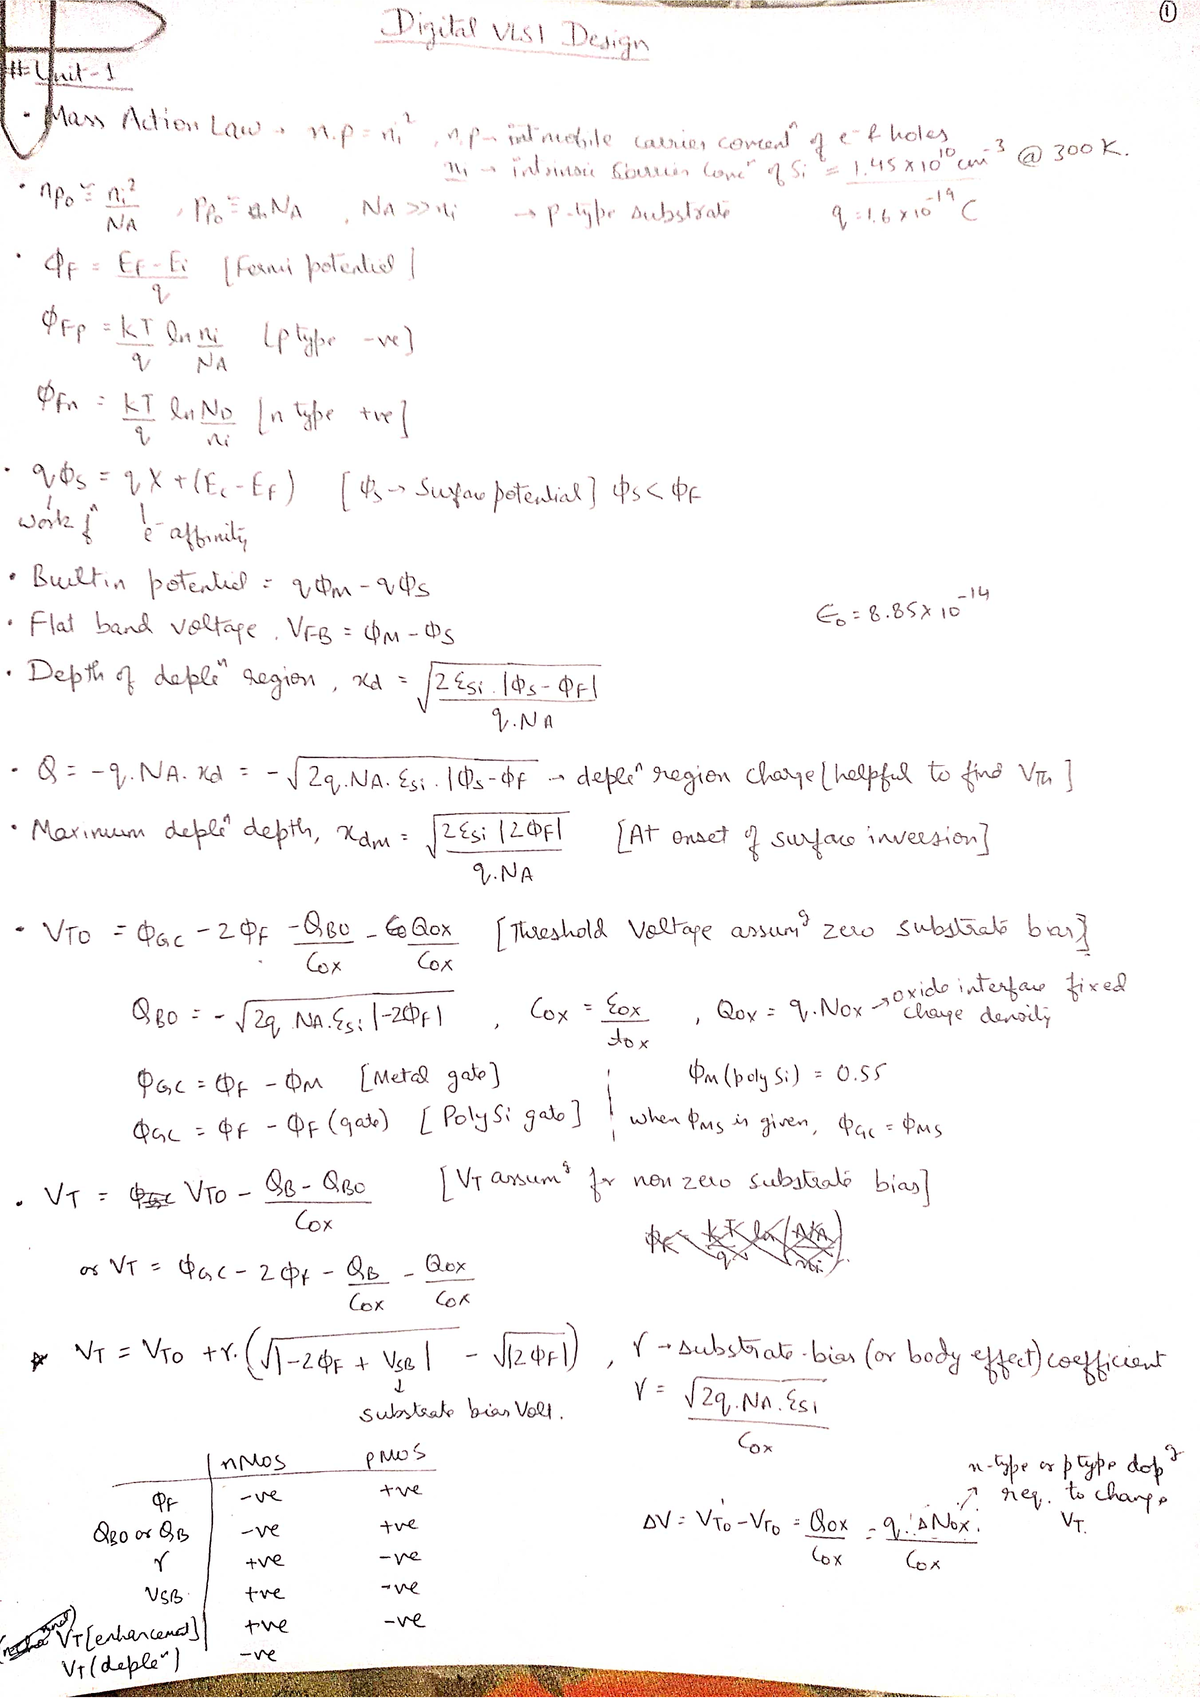 ①
Digital VLSI Design
# Unit-1
• Mass Action Law → n.p = ni² , n,p → mobile carrier concenⁿ of e⁻ & holes
ni → intrinsic carrier concⁿ of Si = 1.45 × 10¹⁰ cm⁻³ @ 300K.
• npo ≅ ni²/NA , Ppo ≅ NA , NA >> ni → p-type substrate q = 1.6 × 10⁻¹⁹ C
• ΦF = (EF - Ei)/q [Fermi potential]
ΦFp = kT/q ln ni/NA [p type -ve]
ΦFn = kT/q ln ND/ni [n type +ve]
• qΦs = qX + (Ec - EF) [Φs → Surface potential] Φs < ΦF
work fⁿ e⁻ affinity
• Built in potential = qΦM - qΦs
• Flat band voltage, VFB = ΦM - Φs
ε₀ = 8.85 × 10⁻¹⁴
• Depth of depleⁿ region, xd = √(2 εSi . |Φs - ΦF| / q.NA)
• Q = -q.NA.xd = -√(2q.NA.εSi.|Φs - ΦF → depleⁿ region charge [helpful to find VTh]
• Maximum depleⁿ depth, xdm = √(2εSi |2ΦF| / q.NA) [At onset of surface inversion]
• VTO = ΦGC - 2ΦF - QBO/Cox - Qox/Cox [Threshold Voltage assumᵍ zero substrate bias]
QBO = -√(2q NA.εSi |-2ΦF|) , Cox = εox/tox , Qox = q.Nox → oxide interface fixed charge density
ΦGC = ΦF - ΦM [Metal gate] ΦM (poly Si) = 0.55
ΦGC = ΦF - ΦF (gate) [Poly Si gate] when ΦMS is given, ΦGC = ΦMS
• VT = VTO - (QB - QBO)/Cox [VT assumᵍ for non zero substrate bias]
or VT = ΦGC - 2ΦF - QB/Cox - Qox/Cox
☆ VT = VTO + γ.(√|-2ΦF + VSB| - √|2ΦF|) , γ → substrate-bias (or body effect) coefficient
substrate bias Volt.
γ = √(2q.NA.εSi) / Cox
nMOS pMOS
ΦF -ve +ve
QBO or QB -ve +ve
γ +ve -ve
VSB +ve -ve
VT [enhancement] +ve -ve
VT (depleⁿ) -ve
ΔV = VTO' - VTO = Qox/Cox = q.ΔNox/Cox
n-type or p type dopᵍ
req. to change
VT.